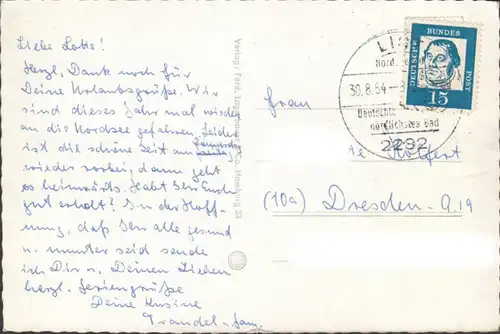 Liebe Lotte!
Herzl. Dank noch für
Deine Urlaubsgrüße. Wir
sind dieses Jahr mal wieder
an die Nordsee gefahren. Leider
ist die schöne Zeit am
wieder vorbei, dann geht
es heimwärts. Habt Ihr Euch
gut erholt? In der Hoff-
nung, daß Ihr alle gesund
u. munter seid sende
ich Dir u. Deinen Lieben
herzl. Feriengrüße
Deine Kusine
Traudel u. Fam.
Verlag: Ferd. Hamburg 33
LIS
Nord.
30.8.64
Deutschl
nördlichstes Bad
2282
DEUTSCHE
BUNDES
POST
15
Frau
(10a) Dresden-A.19